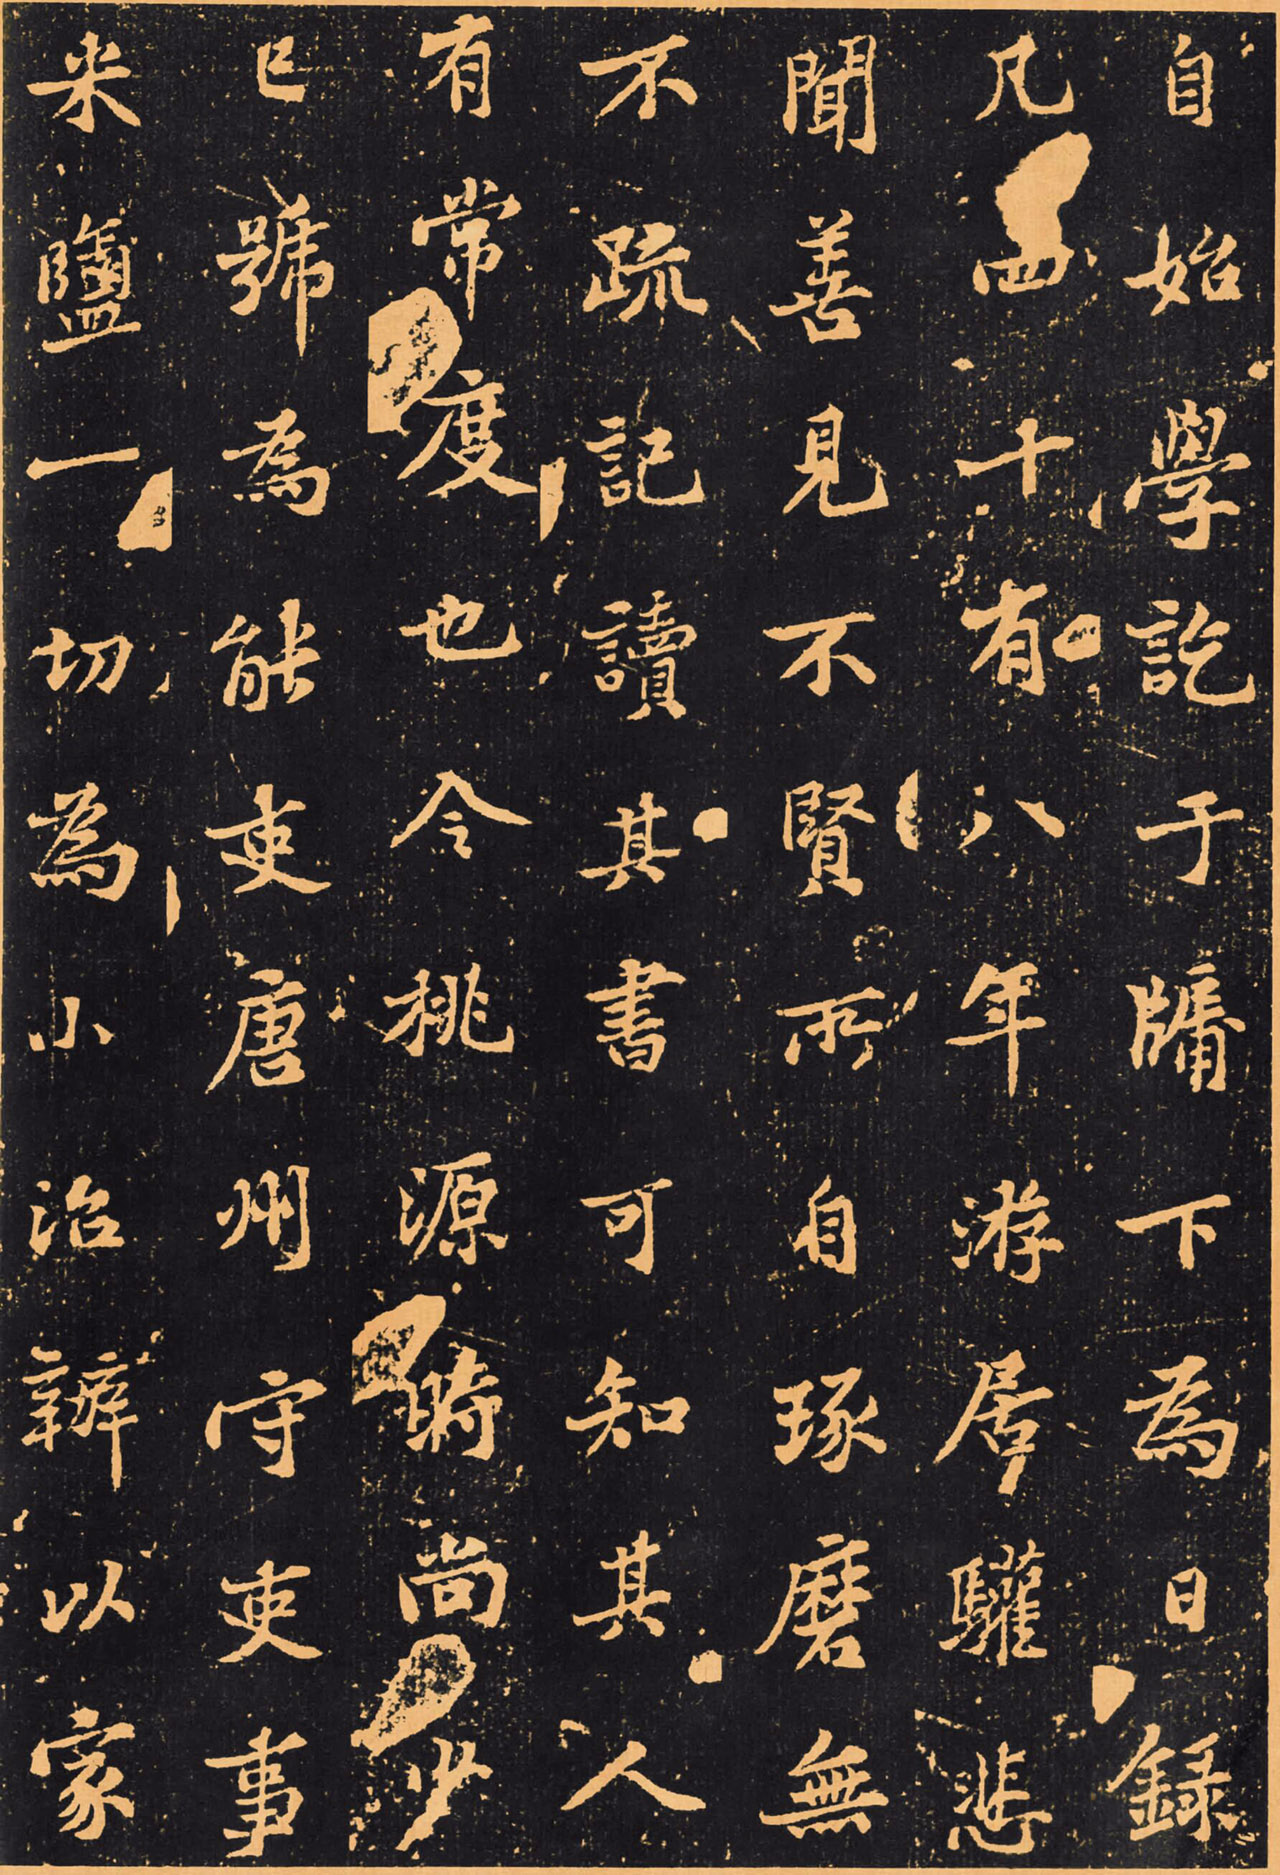 自始學訖于牖下為日錄
凡四十有八年游居驩悲
聞善見不賢所自琢磨無
不疏記讀其書可知其人
有常度也令桃源時尚少
已號為能吏唐州守吏事
米鹽一切為小治辦以家